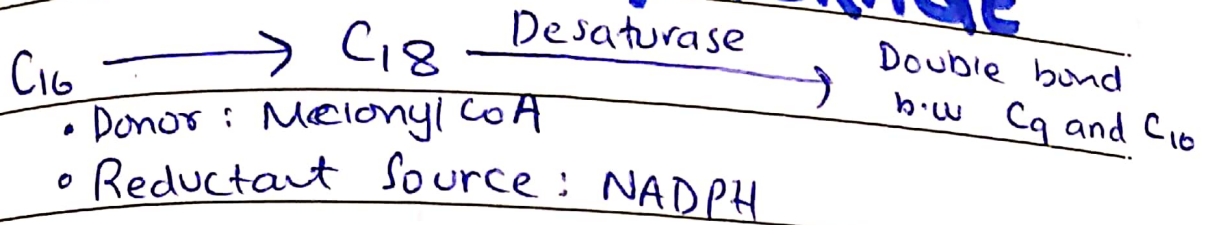 C₁₆ ⟶ C₁₈ Desaturase ⟶ Double bond
b.w C₉ and C₁₀
• Donor : Malonyl CoA
• Reductant Source : NADPH